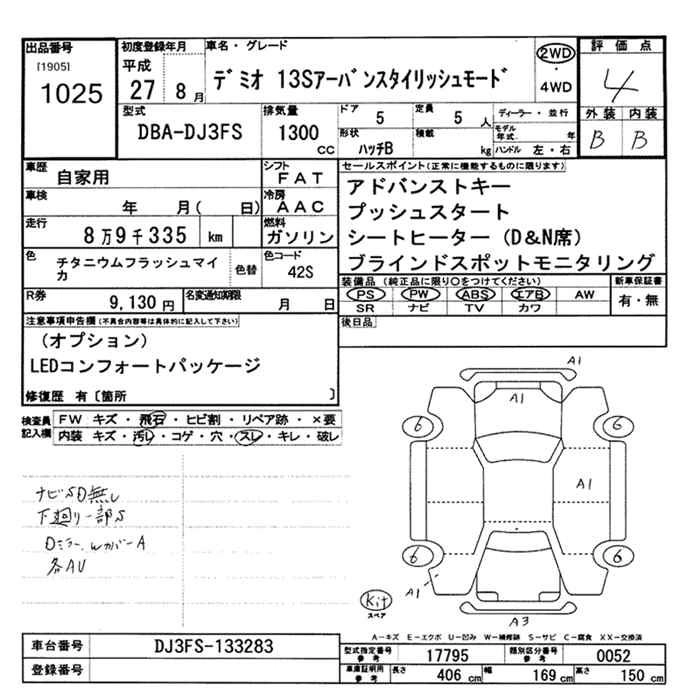 出品番号
[1905]
1025
初度登録年月
平成
27 8月
車名・グレード
デミオ 13Sアーバンスタイリッシュモード
2WD
・
4WD
評価点
4
外装 内装
B B
型式
DBA-DJ3FS
排気量
1300
cc
ドア
5
定員
5 人
形状
ハッチB
積載
kg
ディーラー・並行
モデル年式 年
ハンドル 左・右
車歴
自家用
シフト
FAT
車検
年 月( 日)
冷房
AAC
走行
8万9千335 km
燃料
ガソリン
色
チタニウムフラッシュマイカ
色替
色コード
42S
R券
9,130円
名変通知期限
月 日
セールスポイント(正常に機能するものに限ります)
アドバンストキー
プッシュスタート
シートヒーター(D&N席)
ブラインドスポットモニタリング
装備品(純正品に限り○をつけてください)
PS PW ABS エアB AW
SR ナビ TV カワ
新車保証書
有・無
後日品
注意事項申告欄(不具合内容等は具体的に記入して下さい)
(オプション)
LEDコンフォートパッケージ
修復歴 有〔箇所 〕
検査員記入欄
FW キズ・飛石・ヒビ割・リペア跡・×要
内装 キズ・汚レ・コゲ・穴・スレ・キレ・破レ
ナビSD無し
下廻り一部S
Dミラー、WカバーA
各AU
A1
A1
6 6
A1
6 6
A1
Kit
スペア
A3
A-キズ E-エクボ U-凹み W-補修跡 S-サビ C-腐食 XX-交換済
車台番号
DJ3FS-133283
登録番号
型式指定番号
参考
17795
類別区分番号
参考
0052
車庫証明用
参考
長さ
406 cm
幅
169 cm
高さ
150 cm